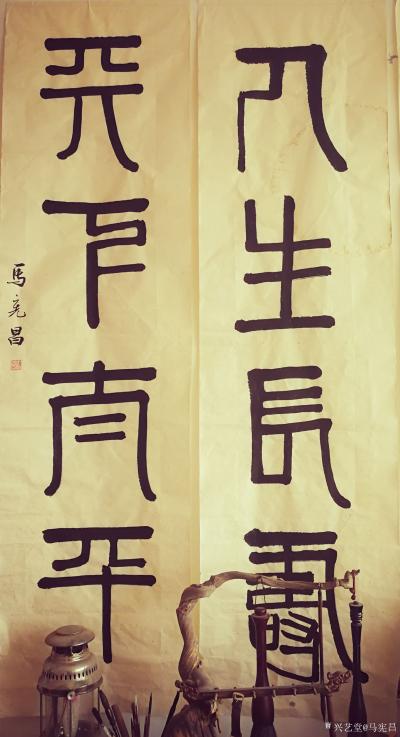 人生長壽
天下太平
馬宪昌
兴艺堂@马宪昌